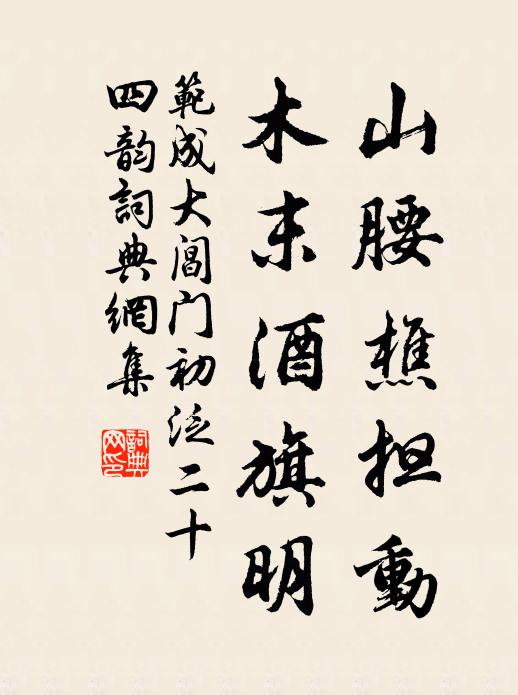 山腰樵担動
木末酒旗明
範成大閶门初泛二十
四韵詞典網集
詞典网印